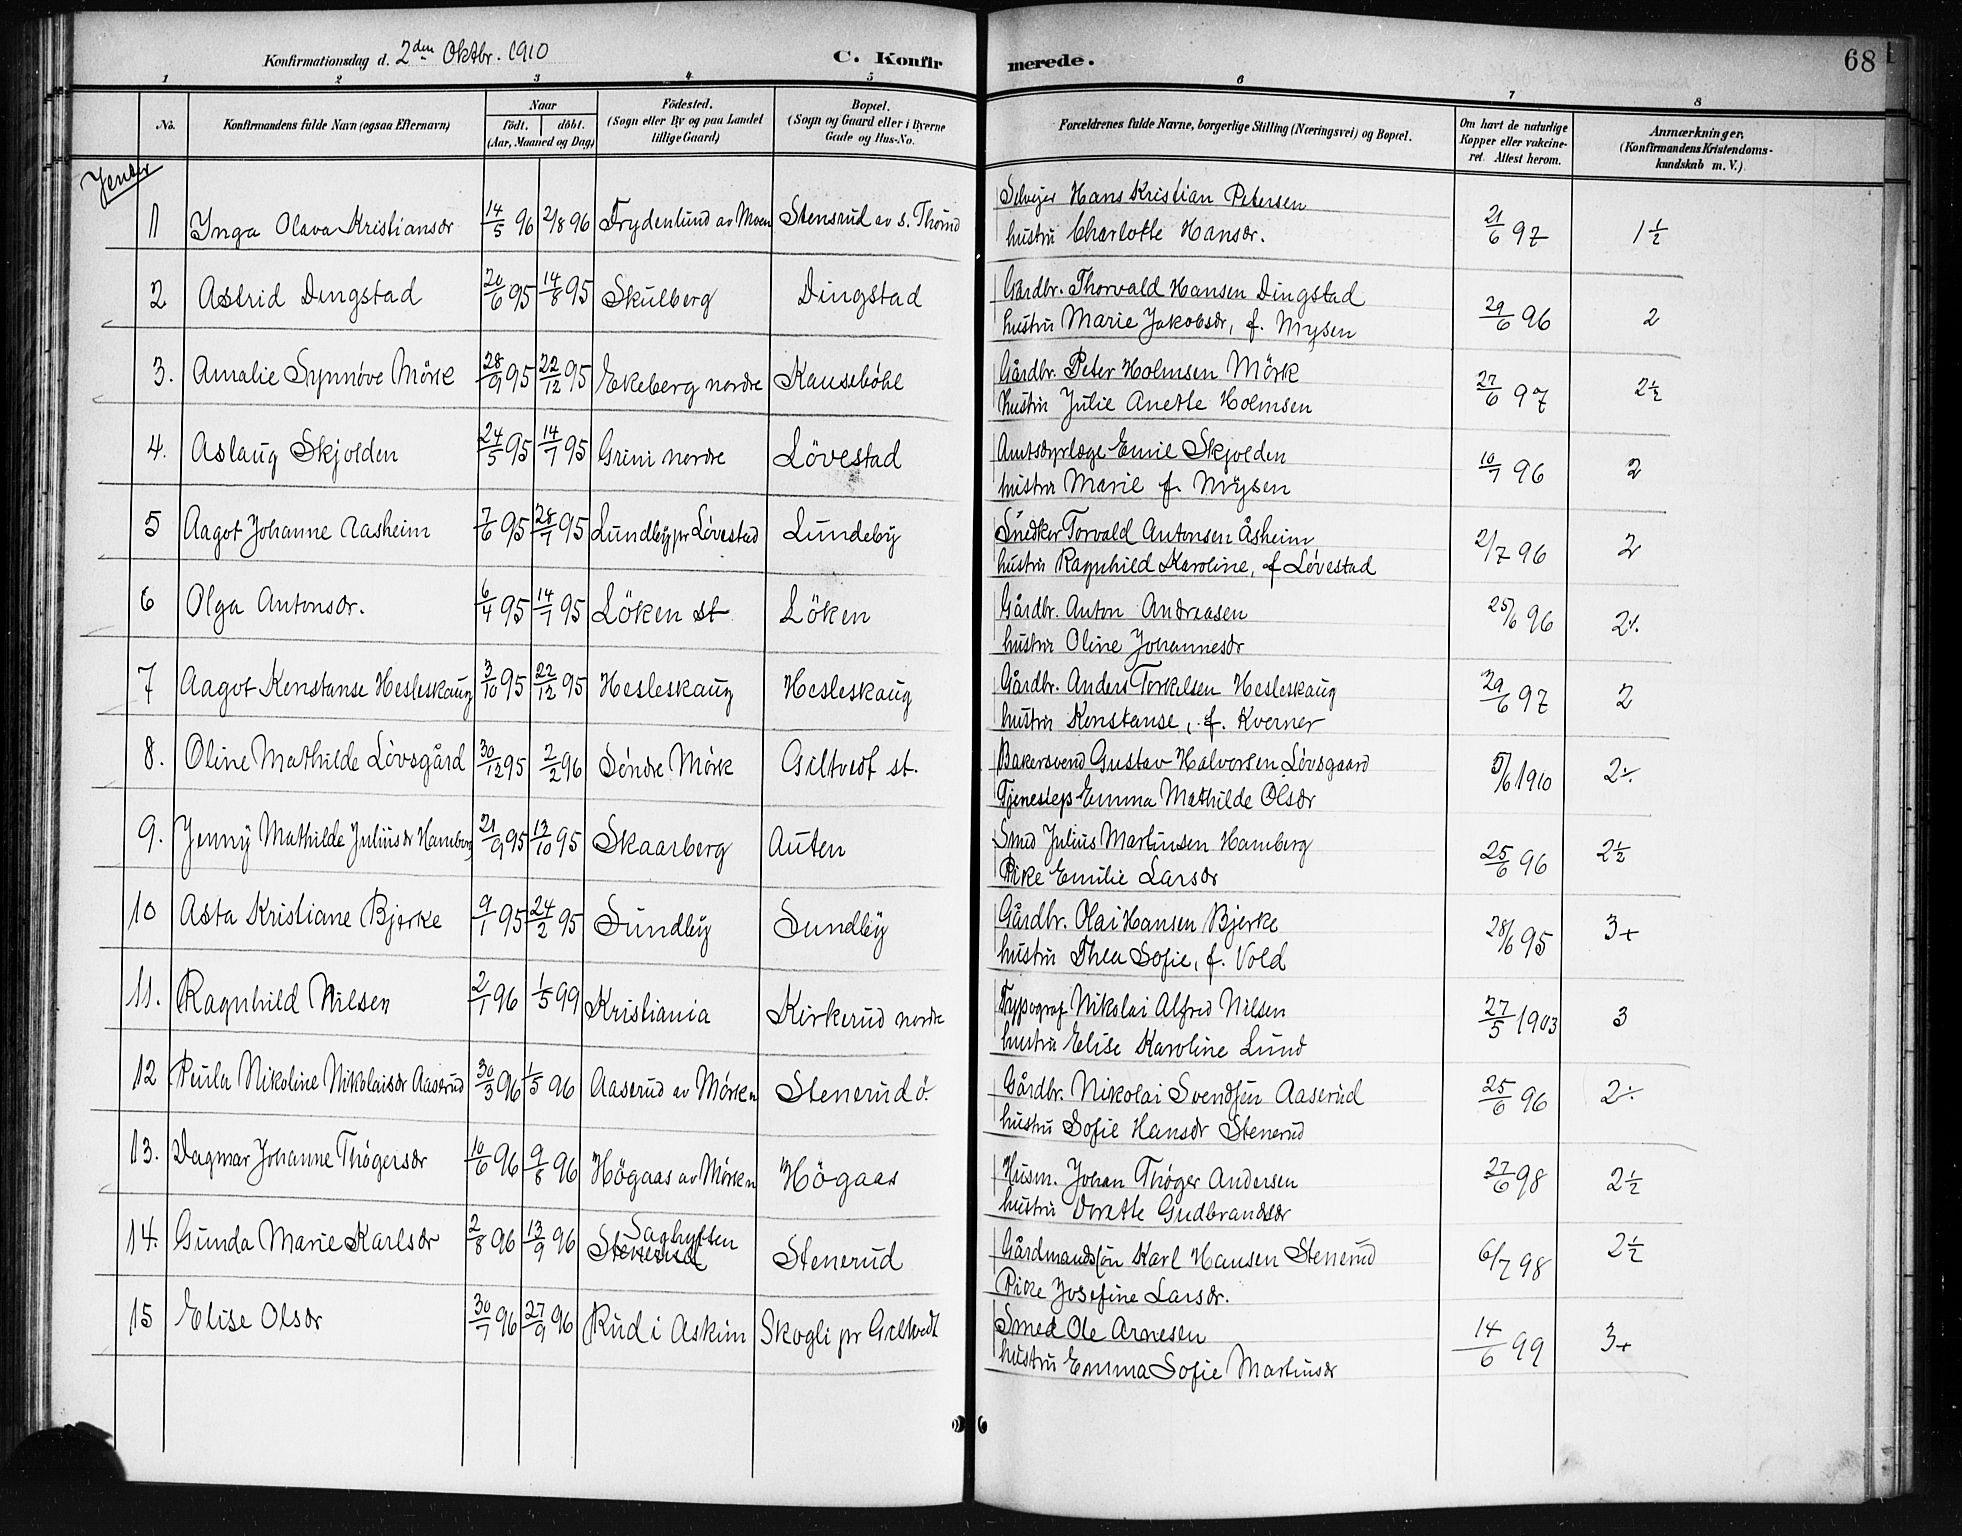 Konfirmationsdag d. 2den Oktbr. 1910
C. Konfirmerede.
68
1 2 3 4 5 6 7 8
No.
Konfirmandens fulde Navn (ogsaa Efternavn)
Naar
födt. döbt.
(Aar, Maaned og Dag)
Födested.
(Sogn eller By og paa Landet tillige Gaard)
Bopæl.
(Sogn og Gaard eller i Byerne Gade og Hus-No.
Forældrenes fulde Navne, borgerlige Stilling (Næringsvei) og Bopæl.
Om havt de naturlige Kopper eller vakcineret. Attest herom.
Anmærkninger.
(Konfirmandens Kristendomskundskab m. V.)
Jenter
1 Inga Olava Kristiansdr 14/5 96 2/8 96 Frydenlund av Moen Stensrud av s. Selveier Hans Kristian Petersen 21/6 97 1 1/2
hustru Charlotte Hansdr.
2 Astrid Dingstad 20/6 95 14/8 95 Skulberg Dingstad Gårdbr. Thorvald Hansen Dingstad 29/6 96 2
hustru Marie Jakobsdr, f. Mysen
3. Amalie Synnöve Mörk 28/9 95 22/12 95 Ekeberg nordre Kauseböhl Gårdbr. Peter Holmsen Mörk 27/6 97 2 1/2
hustru Julie Anette Holmsen
4. Aslaug Skjolden 24/5 95 14/7 95 Grini nordre Lövestad Amtsdyrlæge Emil Skjolden 10/7 96 2
hustru Marie f. Mysen
5 Aagot Johanne Aasheim 7/6 95 28/7 95 Lundby pr Lövestad Lundeby Snedker Torvald Antonsen Åsheim 2/7 96 2
hustru Ragnhild Karoline, f Lövestad
6 Olga Antonsdr. 6/4 95 14/7 95 Löken st Löken Gårdbr. Anton Andreasen 25/6 96 2÷
hustru Oline Johannesdr
7 Aagot Konstanse Hesleskaug 3/10 95 22/12 95 Hesleskaug Hesleskaug Gårdbr. Anders Torkelsen Hesleskaug 29/6 97 2
hustru Konstanse, f. Kverner
8. Oline Mathilde Lövsgård 30/12 95 2/2 96 Söndre Mörk Giltvedt st. Bakersvend Gustav Halvorsen Lövsgaard 5/6 1910 2÷
Tjenestep Emma Mathilde Olsdr
9. Jenny Mathilde Juliusdr Hamberg 21/9 95 13/10 95 Skaarberg Auten Smed Julius Martinsen Hamberg 25/6 96 2 1/2
Pike Emilie Larsdr
10 Asta Kristiane Bjerke 9/1 95 24/2 95 Sundby Sundby Gårdbr. Olai Hansen Bjerke 28/6 95 3+
hustru Thea Sofie, f. Vold
11. Ragnhild Nilsen 2/1 96 1/5 99 Kristiania Kirkerud nordre Typograf Nikolai Alfred Nilsen 27/5 1903 3
hustru Elise Karoline Lund
12 Paula Nikoline Nikolaisdr Aaserud 30/3 96 1/5 96 Aaserud av Mörk n Stenerud ö. Gårdbr. Nikolai Svendsen Aaserud 25/6 96 2÷
hustru Sofie Hansdr Stenerud
13. Dagmar Johanne Thögersdr 10/6 96 9/8 96 Högaas av Mörk n Högaas Husm. Johan Thöger Andersen 27/6 98 2 1/2
hustru Dorette Gudbrandsdr
14. Gunda Marie Karlsdr 2/8 96 13/9 96 Saghytten Stenerud Stenerud Gårdmandssön Karl Hansen Stenerud 6/7 98 2 1/2
Pike Josefine Larsdr.
15 Elise Olsdr 30/7 96 27/9 96 Rud i Askim Skogli pr Giltvedt Smed Ole Arnesen 14/6 99 3+
hustru Emma Sofie Martinsdr